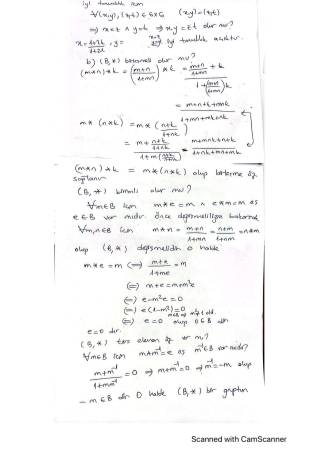 iyi tanımlılık için
∀(x,y), (z,t) ∈ G×G (x,y) = (z,t)
⇒ x=z ∧ y=t ⇒ x*y = z*t olur mu?
iyi tanımlılık açıktır.
b) (B,*) birleşmeli olur mu?
(m*n)*k = (m+n/1+mn) * k = m+n/1+mn + k
1 + (m+n/1+mn)k
= m+n+k+mnk
1+mn+mk+nk
m*(n*k) = m*(n+k/1+nk)
= m + n+k/1+nk = m+mnk+n+k
1+nk+mn+mk
(m*n)*k = m*(n*k) olup birleşme öz.
sağlanır
(B,*) birimli olur mu?
∀m∈B için m*e = m ∧ e*m = m os
e∈B var mıdır. önce değişmeliliğine bakarsak
∀m,n∈B için m*n = m+n/1+mn = n+m/1+nm = n*m
olup (B,*) değişmelidir. O halde
m*e = m ⇔ m+e/1+me = m
⇔ m+e = m+m²e
⇔ e-m²e = 0
⇔ e(1-m²) = 0
⇔ e = 0 olup 0∈B dir
e=0 dır.
(B,*) ters eleman öz var mı?
∀m∈B için m*m⁻¹ = e os m⁻¹∈B var mıdır?
m+m⁻¹/1+mm⁻¹ = 0 ⇒ m+m⁻¹ = 0 ⇒ m⁻¹ = -m olup
-m∈B dir O halde (B,*) bir gruptur
Scanned with CamScanner